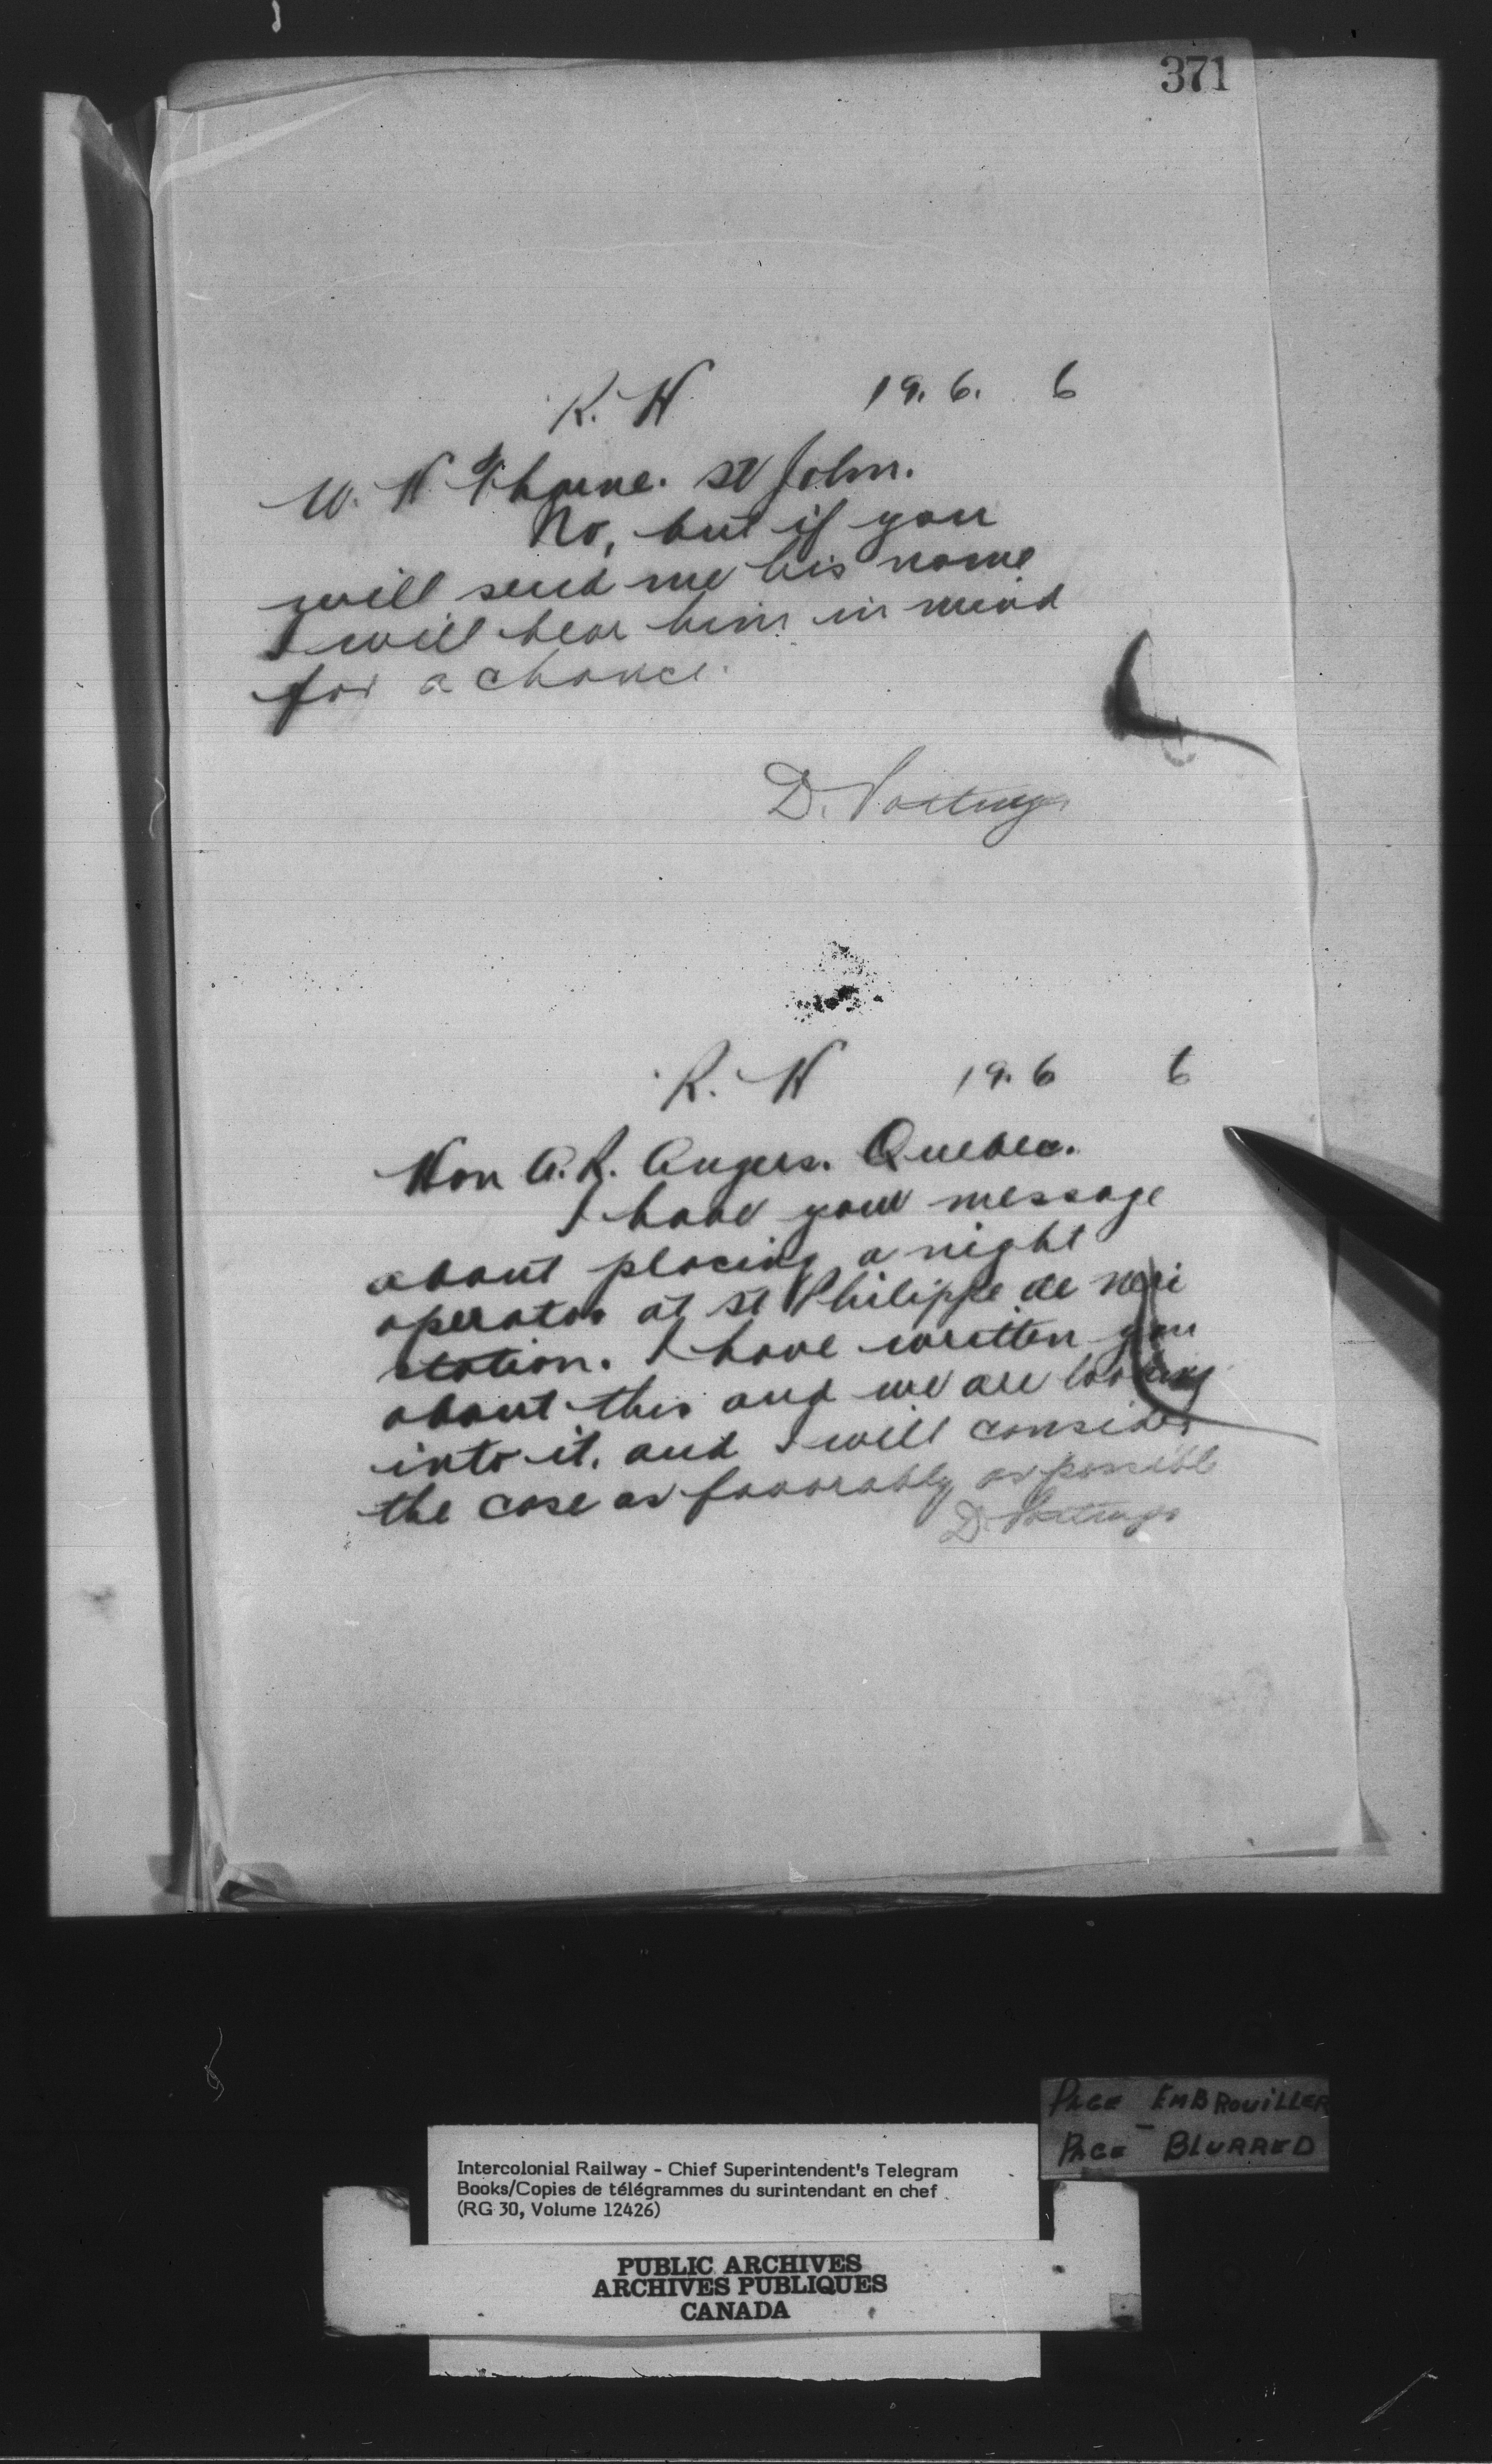 371
R. H 19. 6. 6
W. H Thorne. St John.
No, but if you
will send me his name
I will bear him in mind
for a chance.
D. Pottinger
R. H 19. 6 6
Hon A. R. Angers. Quebec.
I have your message
about placing a night
operator at St Philippe de Neri
station. I have written you
about this and we are looking
into it. and I will consider
the case as favorably as possible
D. Pottinger
PAGE EMBROUILLER
PAGE BLURRED
Intercolonial Railway - Chief Superintendent's Telegram
Books/Copies de télégrammes du surintendant en chef
(RG 30, Volume 12426)
PUBLIC ARCHIVES
ARCHIVES PUBLIQUES
CANADA